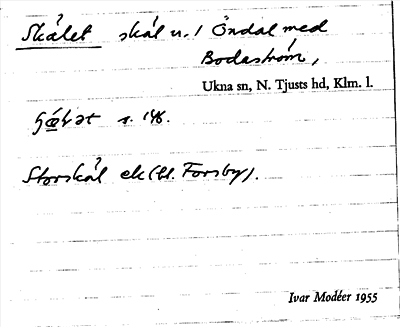 Skålet skål n. / Öndal med
Bodaström,
Ukna sn, N. Tjusts hd, Klm. l.
s. 148.
Storskål ek (bl. Forsby).
Ivar Modéer 1955